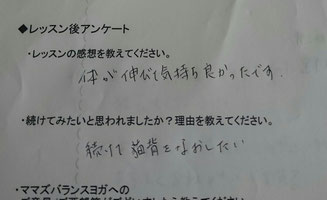 ◆レッスン後アンケート
・レッスンの感想を教えてください。
体が伸びて気持ち良かったです.
・続けてみたいと思われましたか？理由を教えてください。
続けて猫背をなおしたい
・ママズバランスヨガへの